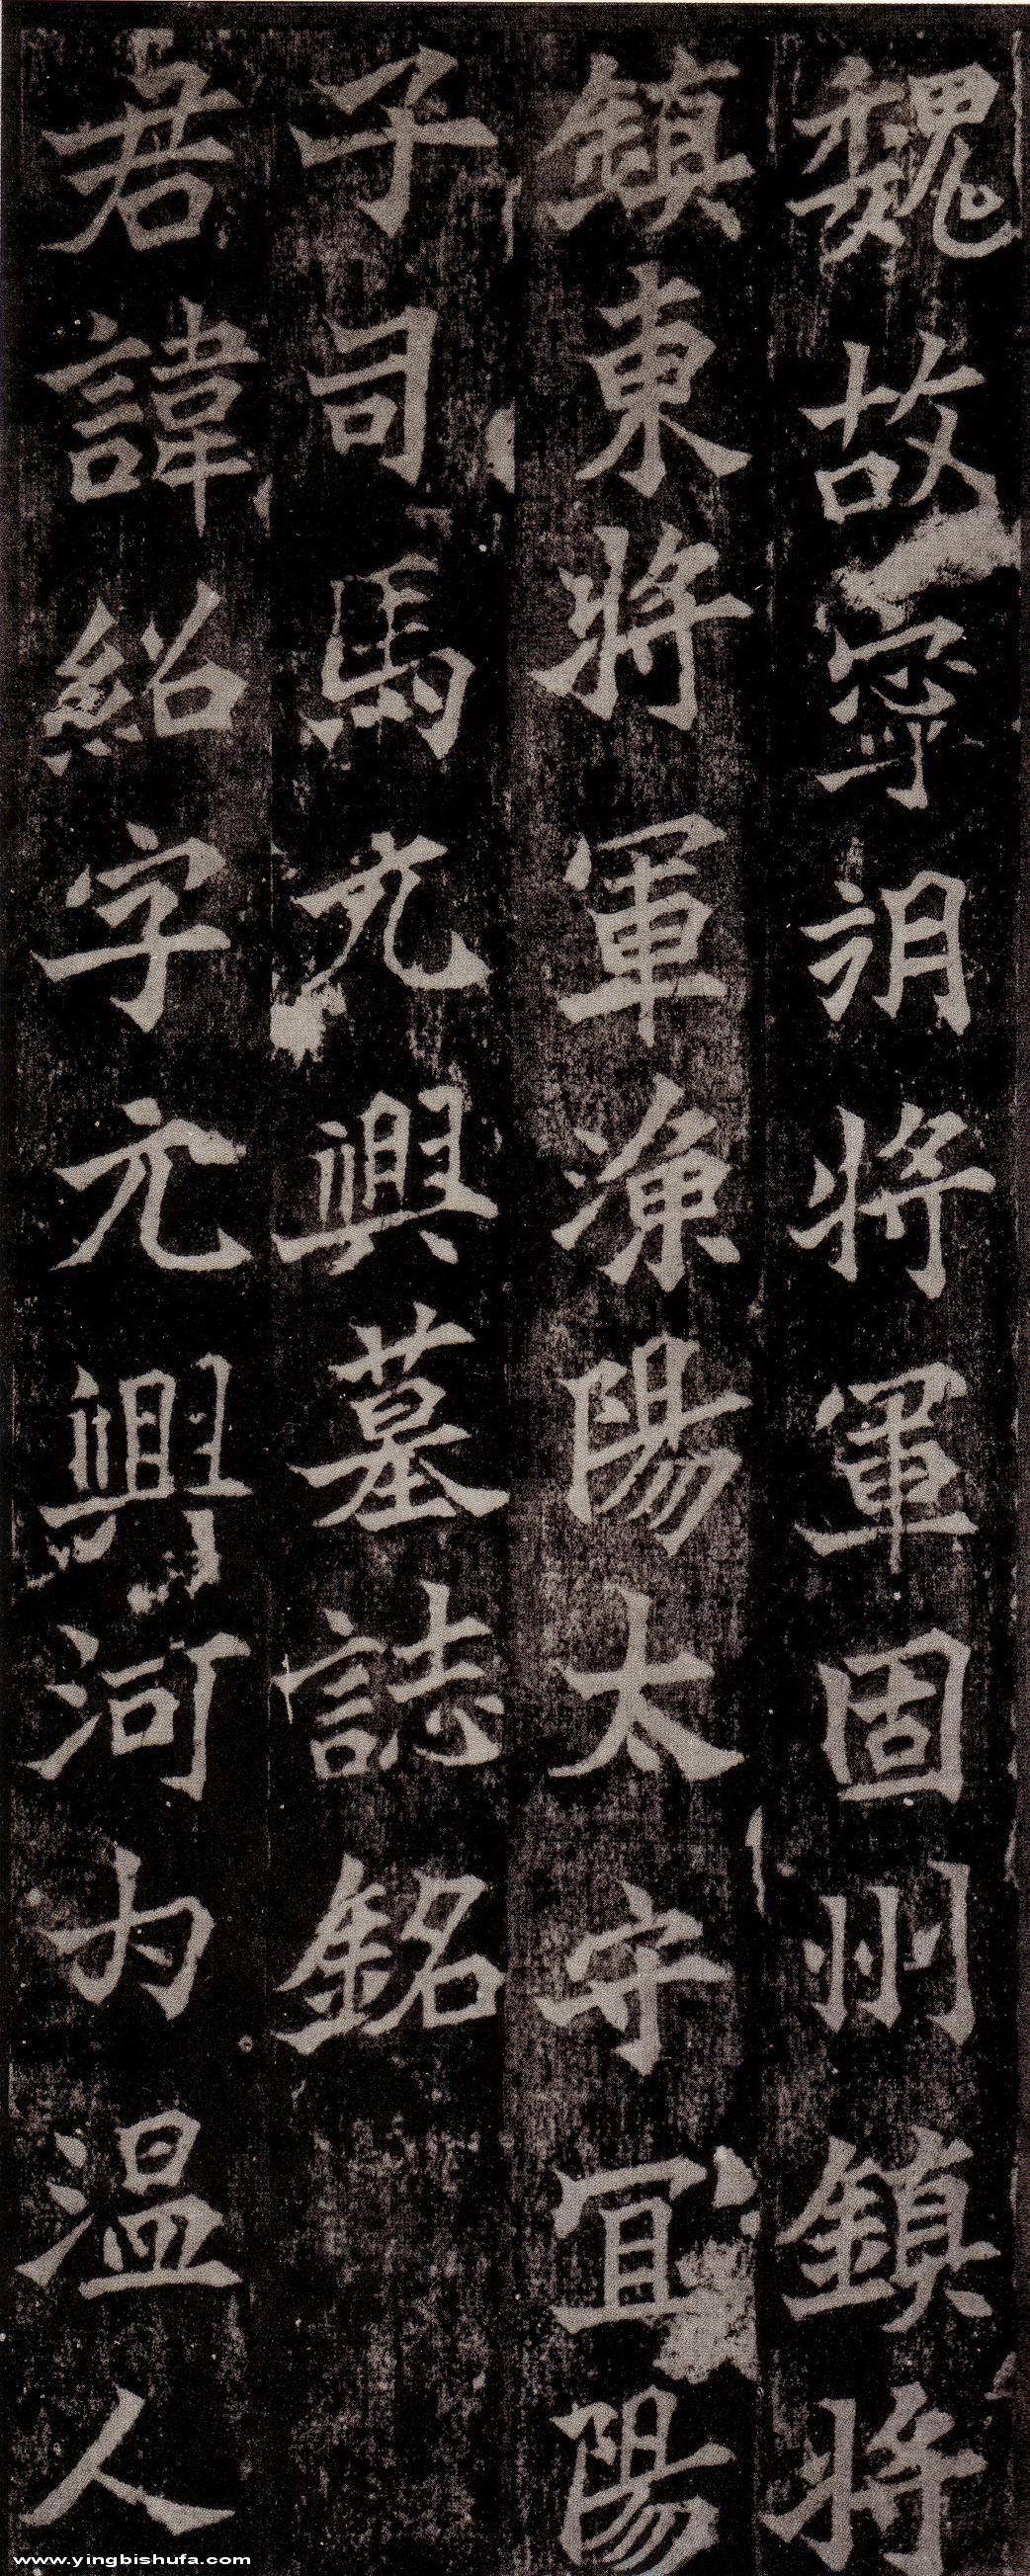 魏故寧朔將軍固州鎮將
鎮東將軍漁陽太守宜陽
子司馬元興墓誌銘
君諱紹字元興河内温人
www.yingbishufa.com